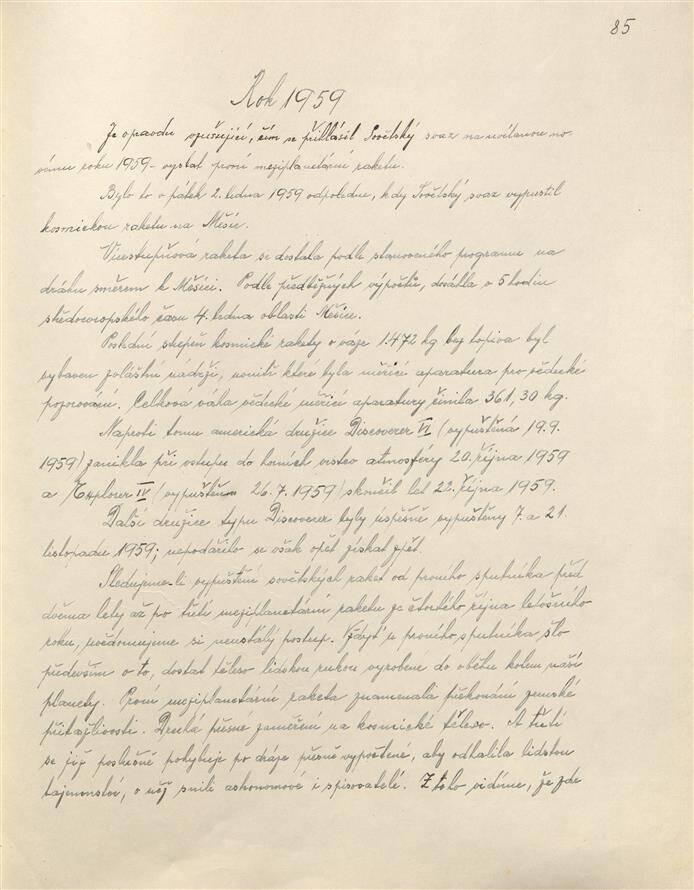 85
Rok 1959
Je opravdu vzrušující, čím se přihlásil Sovětský svaz na uvítanou no-
vému roku 1959 - vyslat první meziplanetární raketu.
Bylo to v pátek 2. ledna 1959 odpoledne, kdy Sovětský svaz vypustil
kosmickou raketu na Měsíc.
Vícestupňová raketa se dostala podle stanoveného programu na
dráhu směrem k Měsíci. Podle předběžných výpočtů, dosáhla v 5 hodin
středoevropského času 4. ledna oblasti Měsíce.
Poslední stupeň kosmické rakety o váze 1.472 kg bez topiva byl
vybaven zvláštní nádrží, uvnitř které byla měřící aparatura pro vědecké
pozorování. Celková váha vědecké měřící aparatury činila 361,30 kg.
Naproti tomu americká družice Discoverer VI (vypuštěná 19.9.
1959) zanikla při vstupu do horních vrstev atmosféry 20. října 1959
a Explorer IV (vypuštěn 26.7.1959) skončil let 22. října 1959.
Další družice typu Discoverer byly úspěšně vypuštěny 7. a 21.
listopadu 1959; nepodařilo se však opět získat zpět.
Sledujeme-li vypuštění sovětských raket od prvního sputnika před
dvěma lety až po třetí meziplanetární raketu ze čtvrtého října letošního
roku, uvědomujeme si neustálý postup. Vždyť u prvního sputnika šlo
především o to, dostat těleso lidskou rukou vyrobené do oběhu kolem naší
planety. První meziplanetární raketa znamenala překonání zemské
přitažlivosti. Druhá přesné zaměření na kosmické těleso. A třetí
se již poslušně pohybuje po dráze přesně vypočtené, aby odhalila lidstvu
tajemství, o něž snili astronomové i spisovatelé. Z toho vidíme, že zde